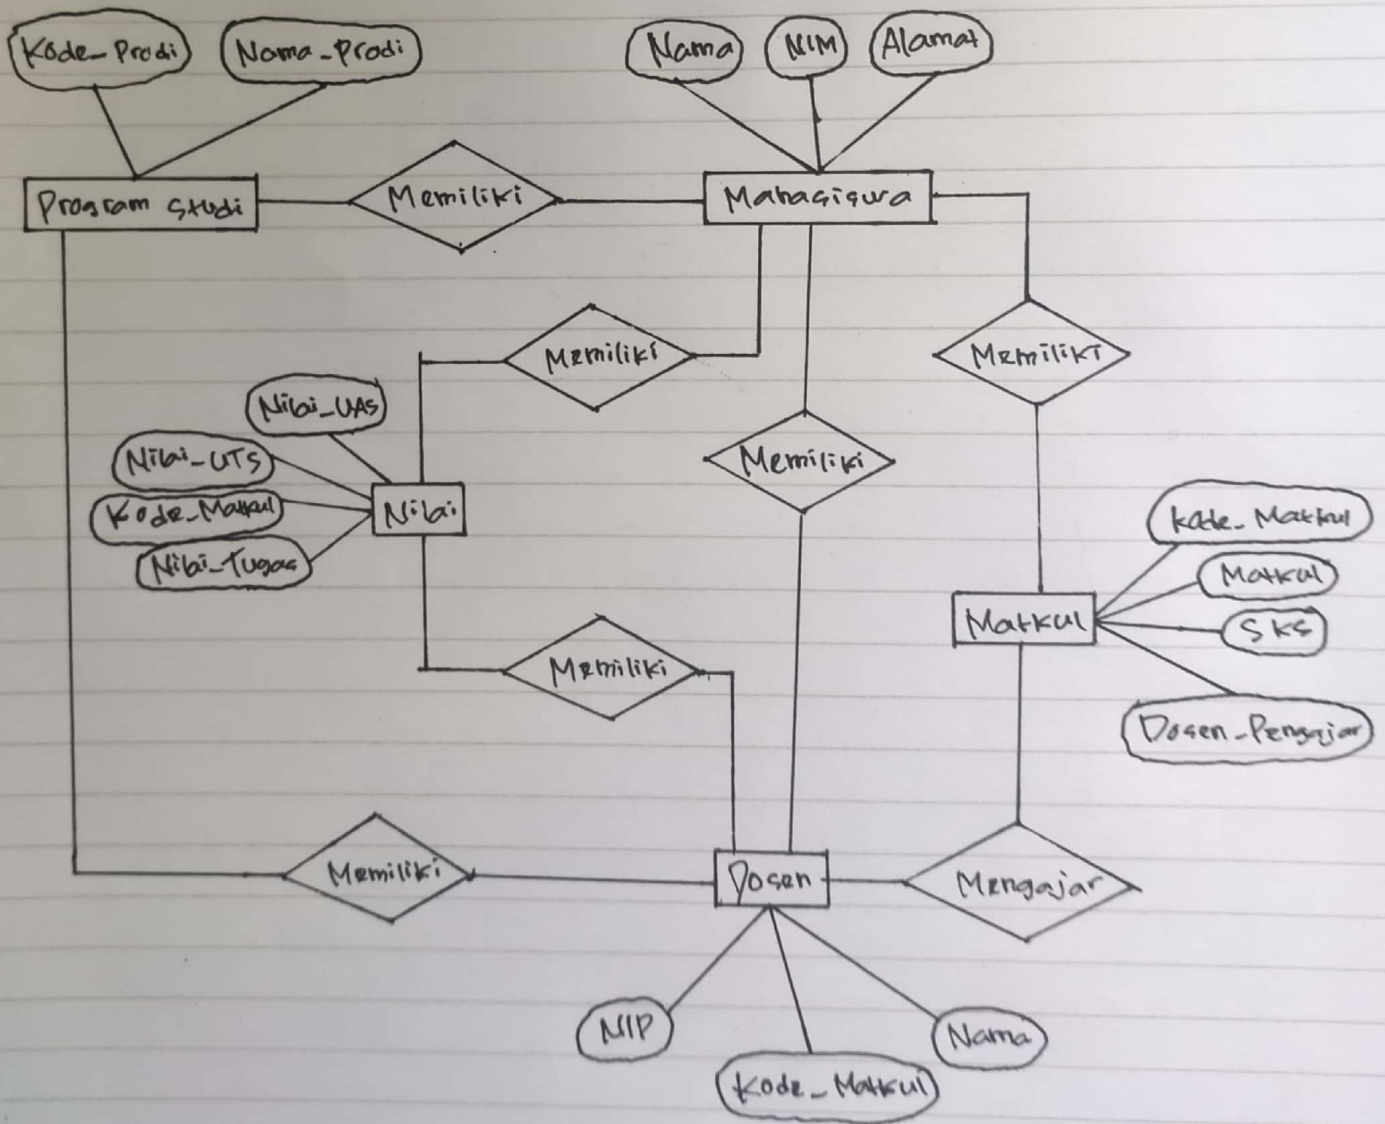 Kode_Prodi
Nama_Prodi
Nama
NIM
Alamat
Program Studi
Memiliki
Mahasiswa
Memiliki
Memiliki
Nilai_UAS
Nilai_UTS
Kode_Matkul
Nilai_Tugas
Nilai
Memiliki
Kode_Matkul
Matkul
SKS
Dosen_Pengajar
Matkul
Memiliki
Memiliki
Dosen
Mengajar
NIP
Kode_Matkul
Nama